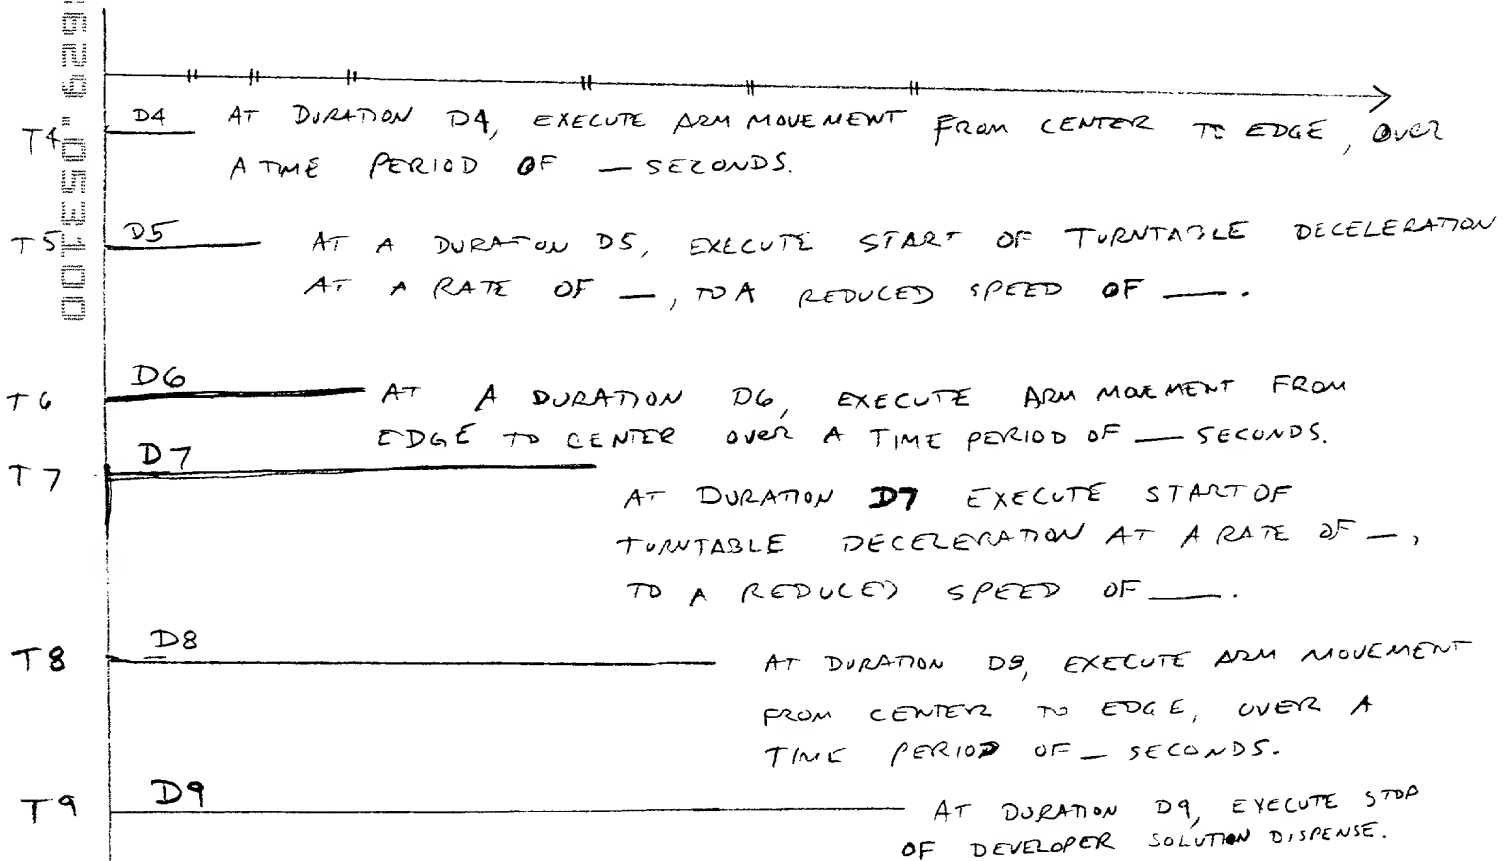 T4 D4 AT DURATION D4, EXECUTE ARM MOVEMENT FROM CENTER TO EDGE, OVER
A TIME PERIOD OF — SECONDS.
T5 D5 AT A DURATON D5, EXECUTE START OF TURNTABLE DECELERATION
AT A RATE OF —, TO A REDUCED SPEED OF —.
T6 D6 AT A DURATION D6, EXECUTE ARM MOVEMENT FROM
EDGE TO CENTER OVER A TIME PERIOD OF — SECONDS.
T7 D7
AT DURATION D7 EXECUTE START OF
TURNTABLE DECELERATION AT A RATE OF —,
TO A REDUCED SPEED OF —.
T8 D8 AT DURATION D8, EXECUTE ARM MOVEMENT
FROM CENTER TO EDGE, OVER A
TIME PERIOD OF — SECONDS.
T9 D9 AT DURATION D9, EXECUTE STOP
OF DEVELOPER SOLUTION DISPENSE.
629.053100